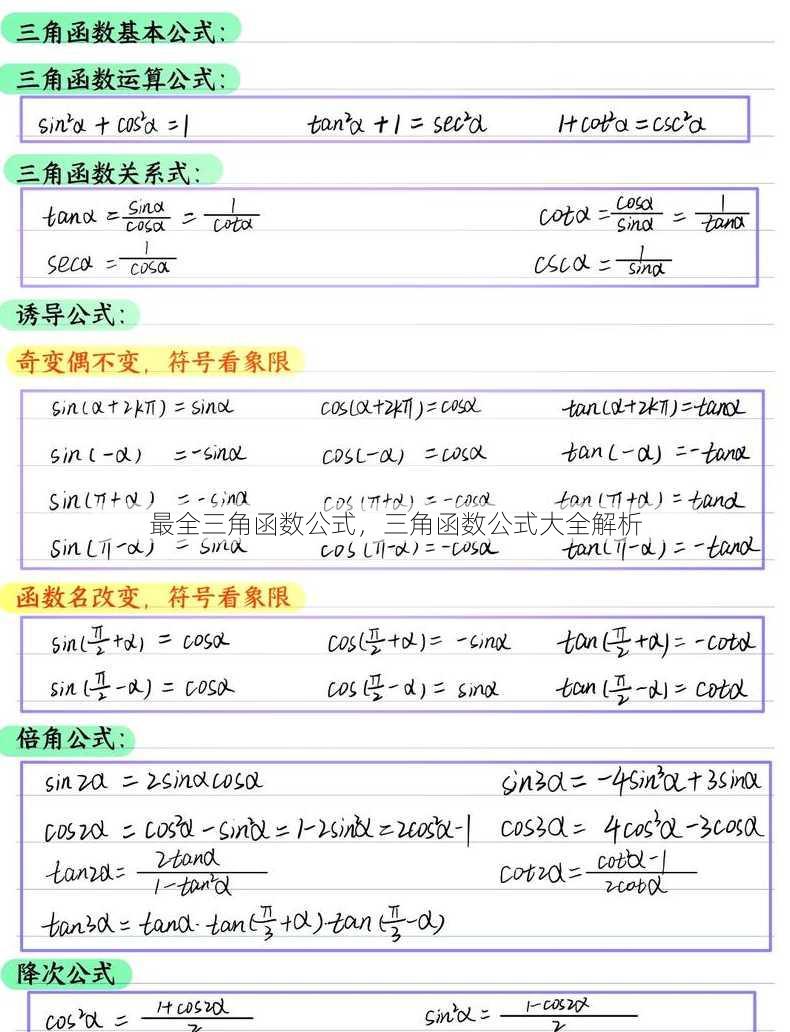 三角函数基本公式:
三角函数运算公式:
sin²α + cos²α = 1    tan²α + 1 = sec²α    1+cot²α = csc²α
三角函数关系式:
tanα = sinα/cosα = 1/cotα    cotα = cosα/sinα = 1/tanα
secα = 1/cosα    cscα = 1/sinα
诱导公式:
奇变偶不变, 符号看象限
sin(α+2kπ) = sinα    cos(α+2kπ) = cosα    tan(α+2kπ) = tanα
sin(-α) = -sinα    cos(-α) = cosα    tan(-α) = -tanα
sin(π+α) = -sinα    cos(π+α) = -cosα    tan(π+α) = tanα
最全三角函数公式，三角函数公式大全解析
sin(π-α) = sinα    cos(π-α) = -cosα    tan(π-α) = -tanα
函数名改变, 符号看象限
sin(π/2+α) = cosα    cos(π/2+α) = -sinα    tan(π/2+α) = -cotα
sin(π/2-α) = cosα    cos(π/2-α) = sinα    tan(π/2-α) = cotα
倍角公式:
sin2α = 2sinαcosα    sin3α = -4sin³α+3sinα
cos2α = cos²α-sin²α = 1-2sin²α = 2cos²α-1    cos3α = 4cos³α-3cosα
tan2α = 2tanα/1-tan²α    cot2α = cot²α-1/2cotα
tan3α = tanα·tan(π/3+α)·tan(π/3-α)
降次公式
cos²α = 1+cos2α/2    sin²α = 1-cos2α/2